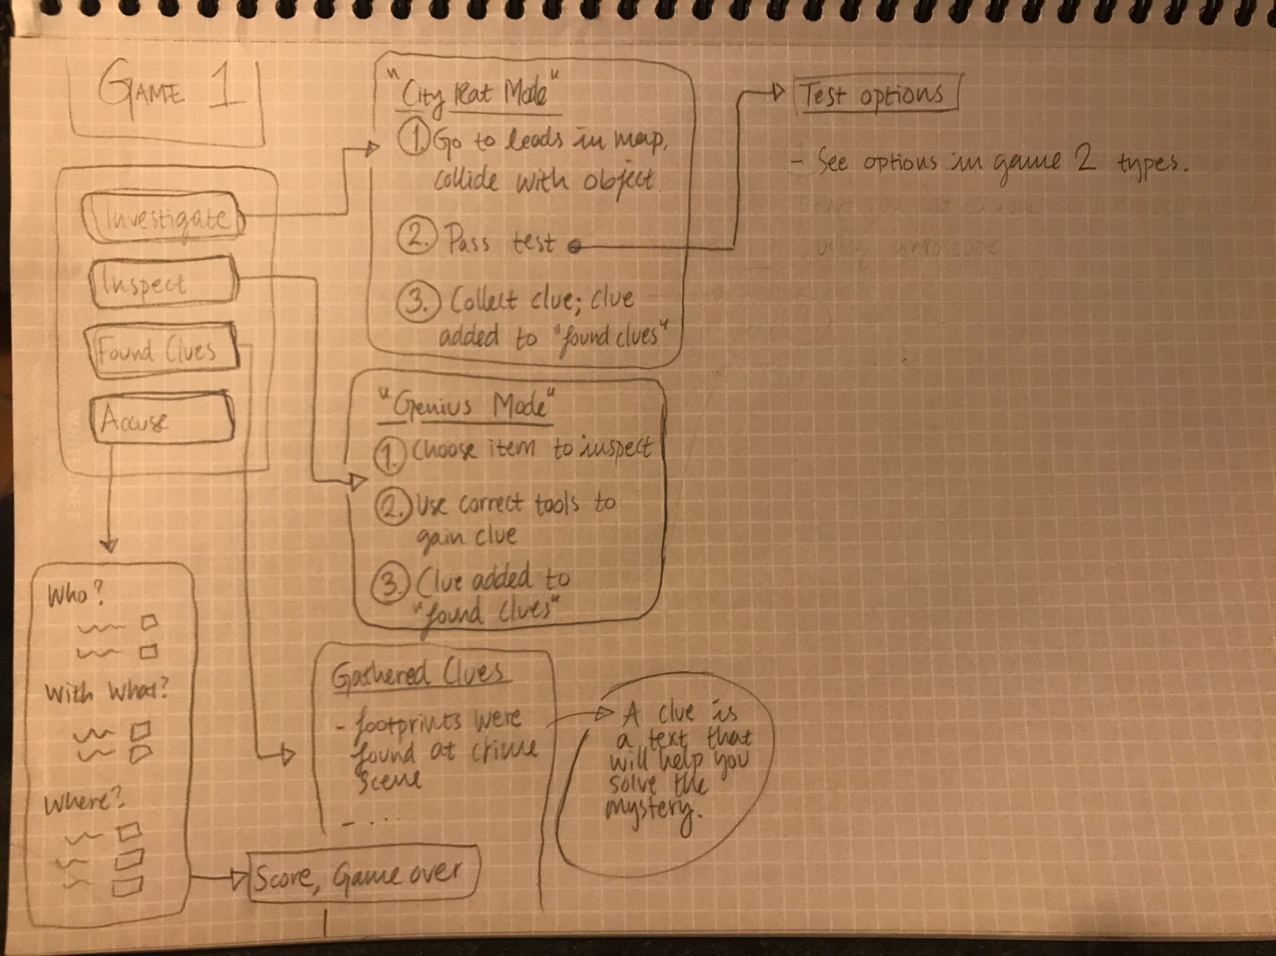 GAME 1
Investigate
Inspect
Found Clues
Accuse
"City Rat Mode"
1. Go to leads in map,
collide with object.
2. Pass test
3. Collect clue; clue
added to "found clues"
Test options
- See options in game 2 types.
"Genius Mode"
1. Choose item to inspect
2. Use correct tools to
gain clue
3. Clue added to
"found clues"
Who?
With what?
Where?
Gathered Clues
- footprints were
found at crime
scene
- ....
A clue is
a text that
will help you
solve the
mystery.
Score, Game over